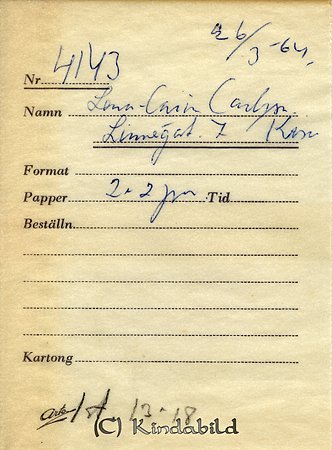 26/3-64.
Nr 4143
Namn Lena-Carin Carlsson
Linnégat. 7
Format
Papper 2+2 Tid
Beställn.
Kartong
1 st. 13-18
(C) Kindabild